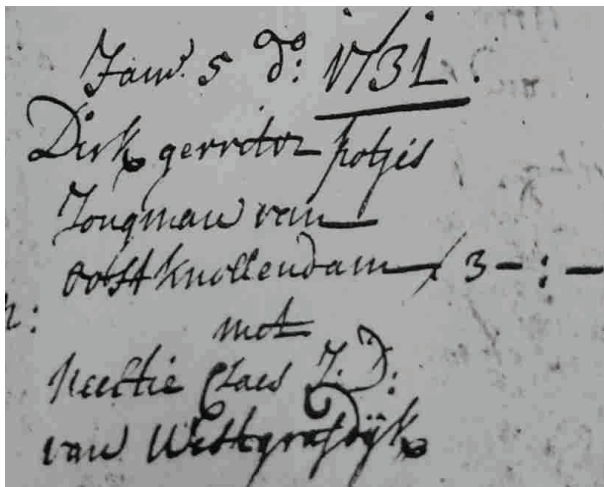 Janu. 5 do: 1731.
Dirk gerritsz potjes
Jongman van
oostknollendam / 3 - : -
met
neeltie Claes J: D:
van Westgrafdijk